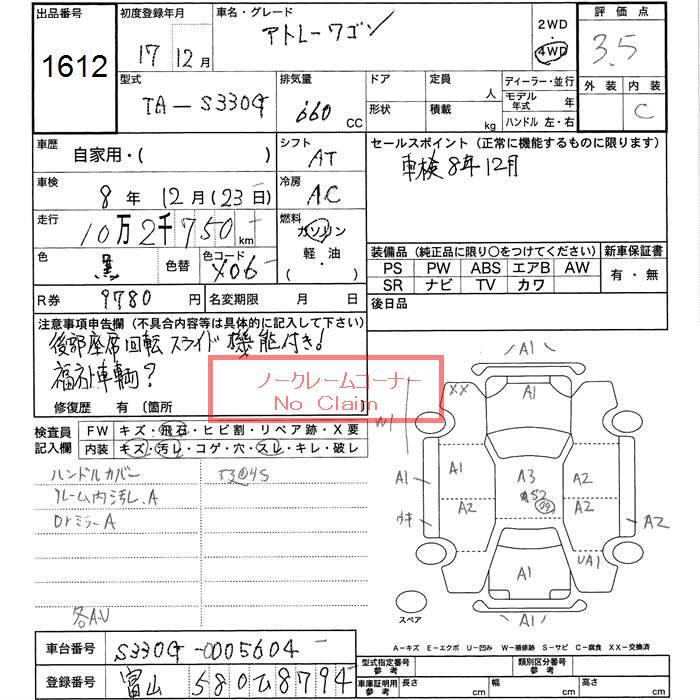 出品番号
1612
初度登録年月
17 12月
車名・グレード
アトレーワゴン
2WD
・
4WD
評価点
3.5
外装 内装
C
型式
TA-S330G
排気量
660 CC
ドア 定員 人
形状 積載 kg
ディーラー・並行
モデル年式 年
ハンドル 左・右
車歴
自家用・( )
シフト
AT
セールスポイント (正常に機能するものに限ります)
車検8年12月
車検
8年 12月(23日)
冷房
AC
走行
10万2千750km
燃料
ガソリン
軽・油
( ・ )
色
黒
色替
色コード
X06
装備品 (純正品に限り○をつけてください)
PS PW ABS エアB AW
SR ナビ TV カワ
新車保証書
有・無
R券 9780円
名変期限 月 日
後日品
注意事項申告欄 (不具合内容等は具体的に記入して下さい)
後部座席回転スライド機能付き!
福祉車輌?
ノークレームコーナー
No Claim
修復歴 有 〔箇所 〕
検査員記入欄
FW キズ・飛石・ヒビ割・リペア跡・X要
内装 キズ・汚レ・コゲ・穴・スレ・キレ・破レ
ハンドルカバー
ルーム内汚レ.A
DrミラーA
各A.U
A1
XX
A1
W1
A1
A1
A3
A2
S2
A2
A2
ウキ
A2
A1
UA1
A1
スペア
A-キズ E-エクボ U-凹み W-補修跡 S-サビ C-腐食 XX-交換済
車台番号 S330G-0005604
登録番号 富山 580ひ8794
型式指定番号
参考
類別区分番号
参考
車庫証明用
参考
長さ cm
幅 cm
高さ cm